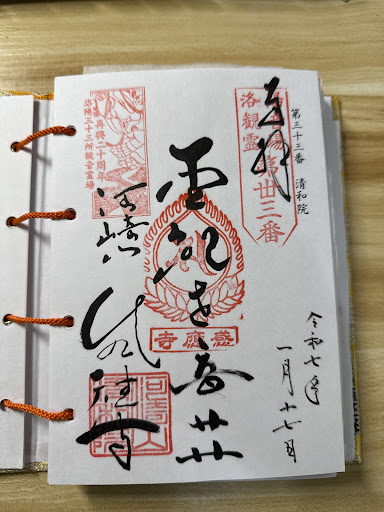 奉拝
第三十三番 清和院
洛陽第丗三番
聖観世音
感應寺
再興二十周年
洛陽三十三所観音霊場
河崎
清和院
令和七年
一月十七日